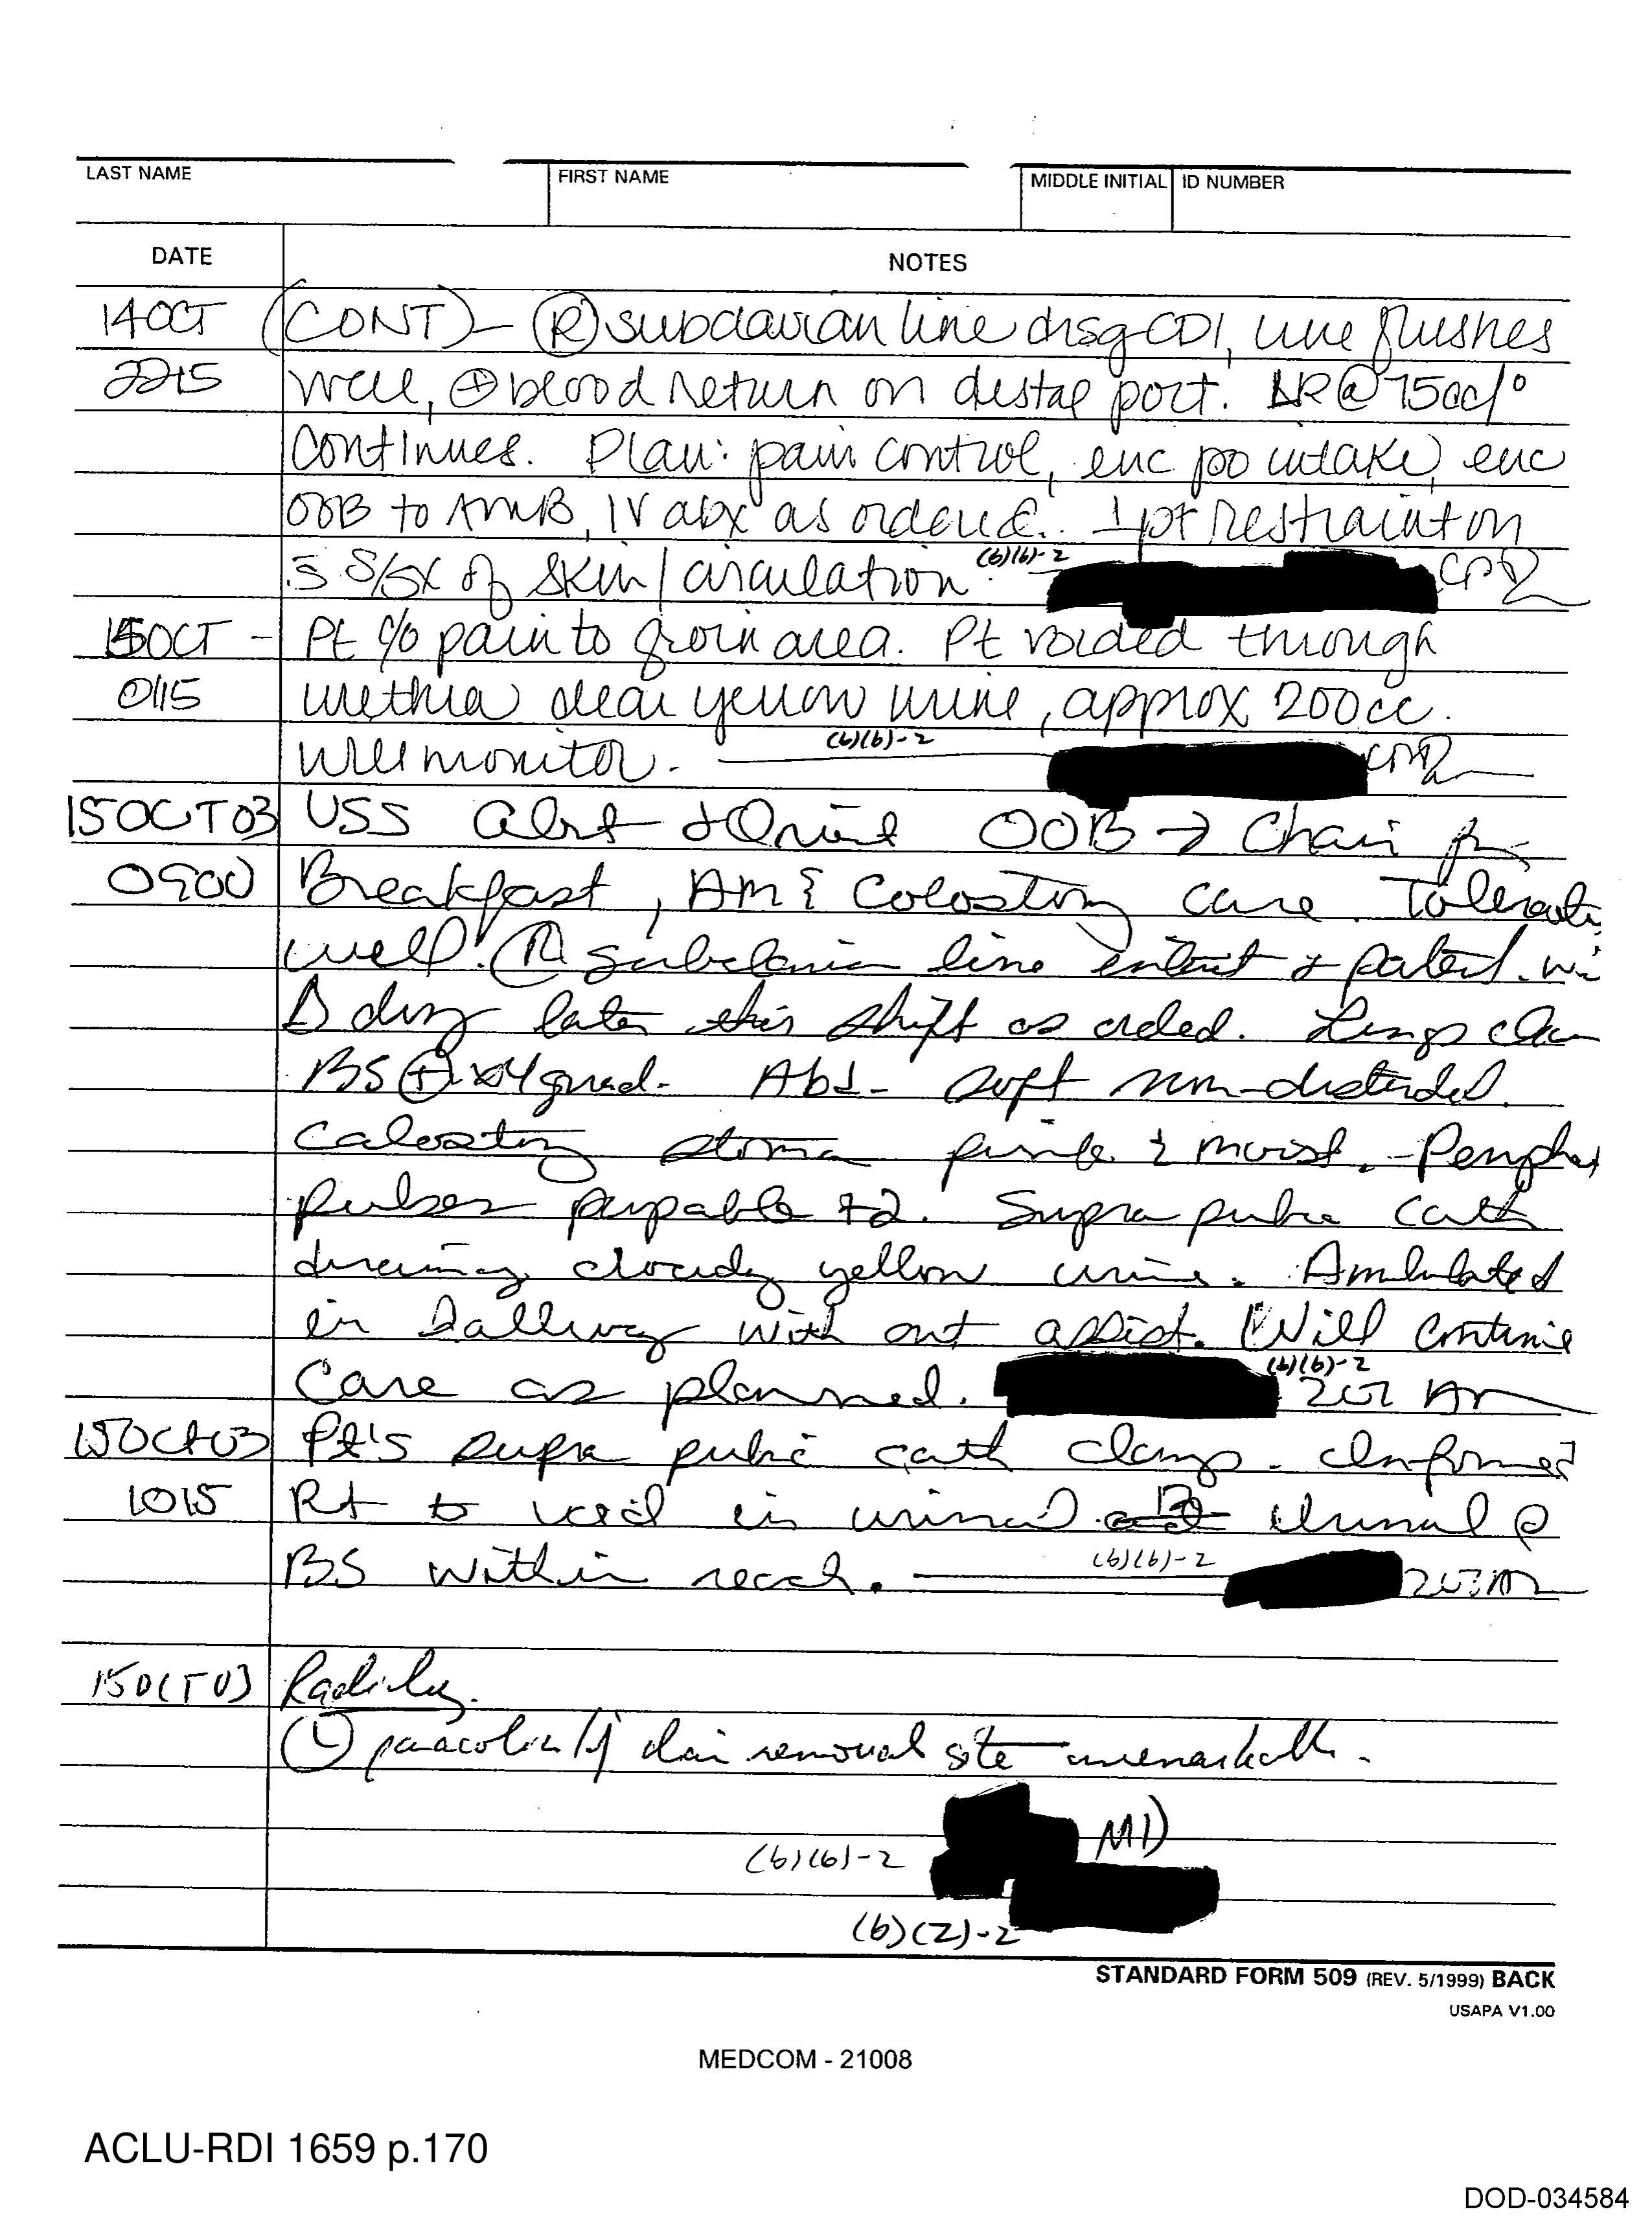 LAST NAME FIRST NAME MIDDLE INITIAL ID NUMBER
DATE NOTES
14OCT (CONT)- Ⓡ subclavian line drsg CDI, line flushes
2215 well, ⊕ blood return on distal port. LR @ 75cc/°
continues. Plan: pain control, enc po intake, enc
OOB to AMB, IV abx as ordered. 1 pt restraint on
s̄ S/Sx of skin/circulation. (b)(6)-2
15OCT - Pt c/o pain to groin area. Pt voided through
0115 urethra clear yellow urine, approx 200cc.
Will monitor. (b)(6)-2
15OCT03 VSS alert & Orient OOB → Chair for
0900 Breakfast, AM & Colostomy care. Tolerated
well. Ⓡ subclavian line intact & patent.
Δ drsg later this shift as ordered. Lungs clear
BS ⊕ x4 quad- Abd- soft non-distended.
Colostomy stoma pink & moist. Peripheral
pulses palpable +2. Supra pubic cath
draining cloudy yellow urine. Ambulated
in hallway with out assist. Will continue
Care as planned. (b)(6)-2
15Oct03 Pt's supra pubic cath clamp. Informed
1015 Pt to void in urinal. Urinal @
BS within reach. (b)(6)-2
15OCT03 Radiology.
Ⓛ paracolic drain removal site unremarkable.
MD
(b)(6)-2
(b)(2)-2
STANDARD FORM 509 (REV. 5/1999) BACK
USAPA V1.00
MEDCOM - 21008
ACLU-RDI 1659 p.170
DOD-034584